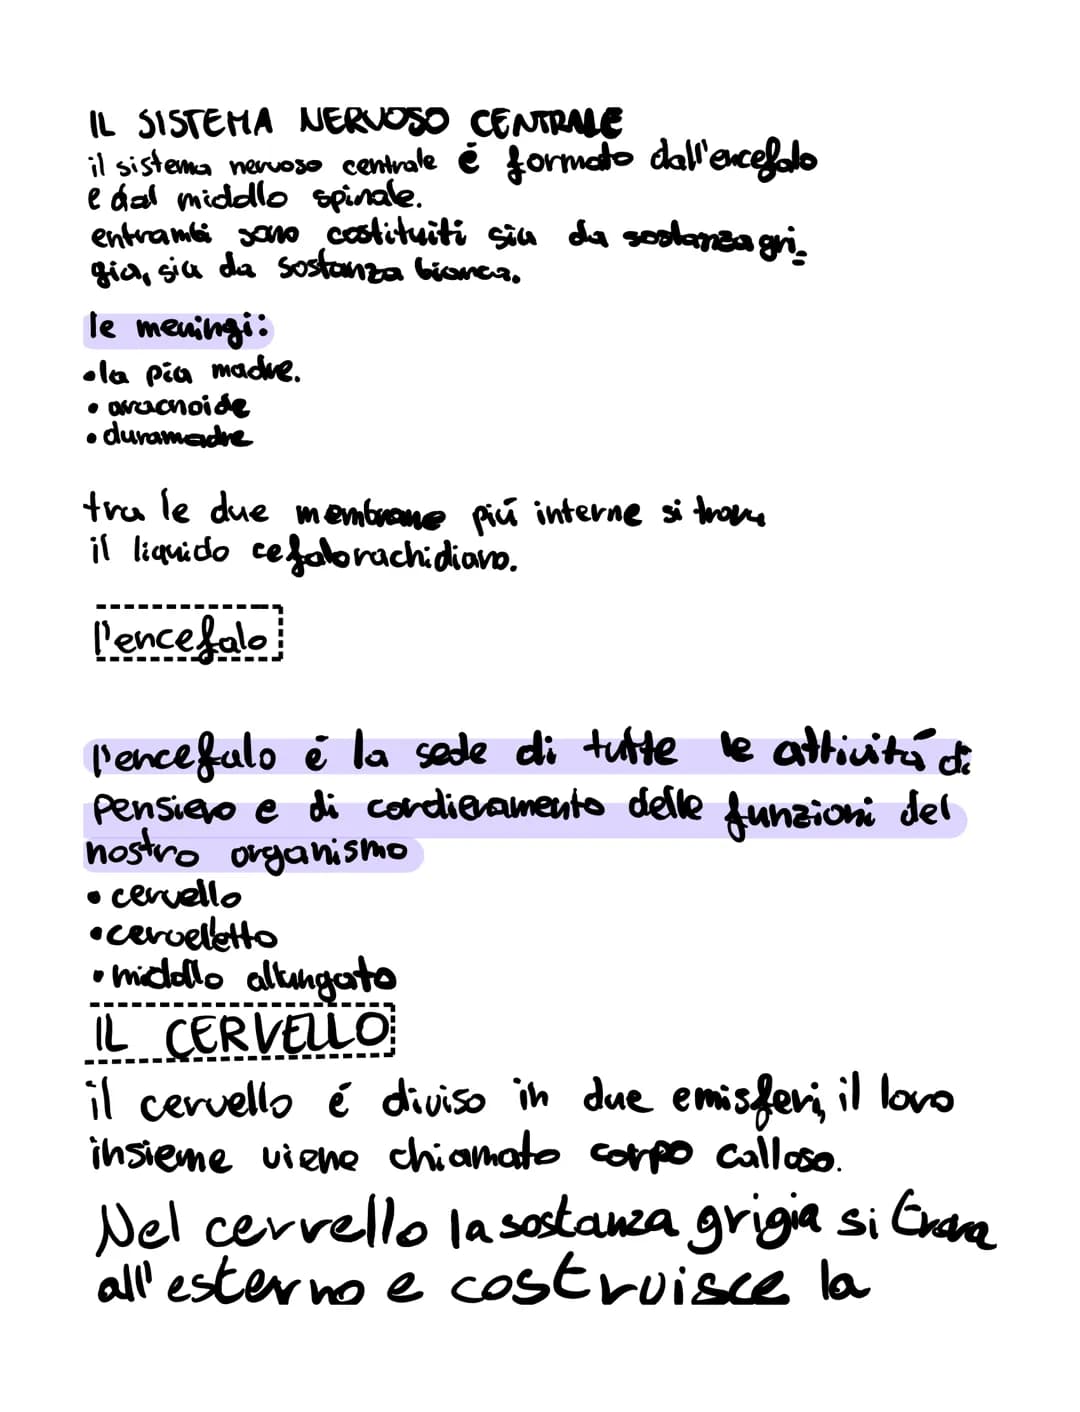 IL SISTEMA NERVOSO CENTRALE
il sistema nervoso centrale é formato dall'encefalo
e dal middllo spinale.
entrambi sono costituiti sia da sostanza gri-
gia, sia da sostanza bianca.
le meningi:
• la pia madre.
• aracnoide
• duramadre
tra le due membrane piú interne si trova
il liquido cefalorachidiano.
l'encefalo
l'encefalo é la sede di tutte le attivitá di
pensiero e di cordieramento delle funzioni del
nostro organismo
• cervello
• cervelletto
• middllo allungato
IL CERVELLO
il cervello é diviso in due emisferi, il loro
insieme viene chiamato corpo calloso.
Nel cervello la sostanza grigia si trova
all'esterno e costruisce la